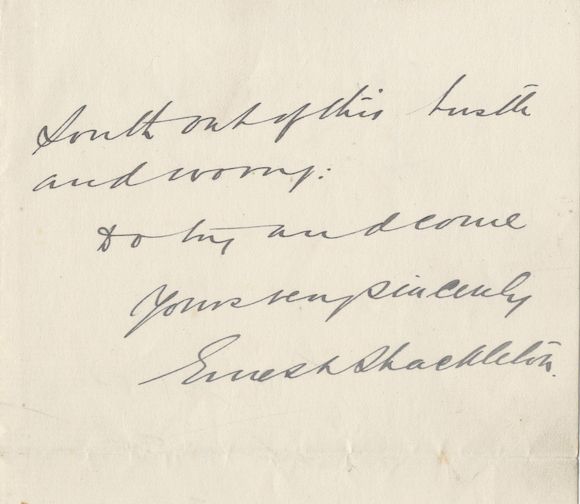 South out of this bustle
and worry:
Do try and come
Yours very sincerely
Ernest Shackleton.